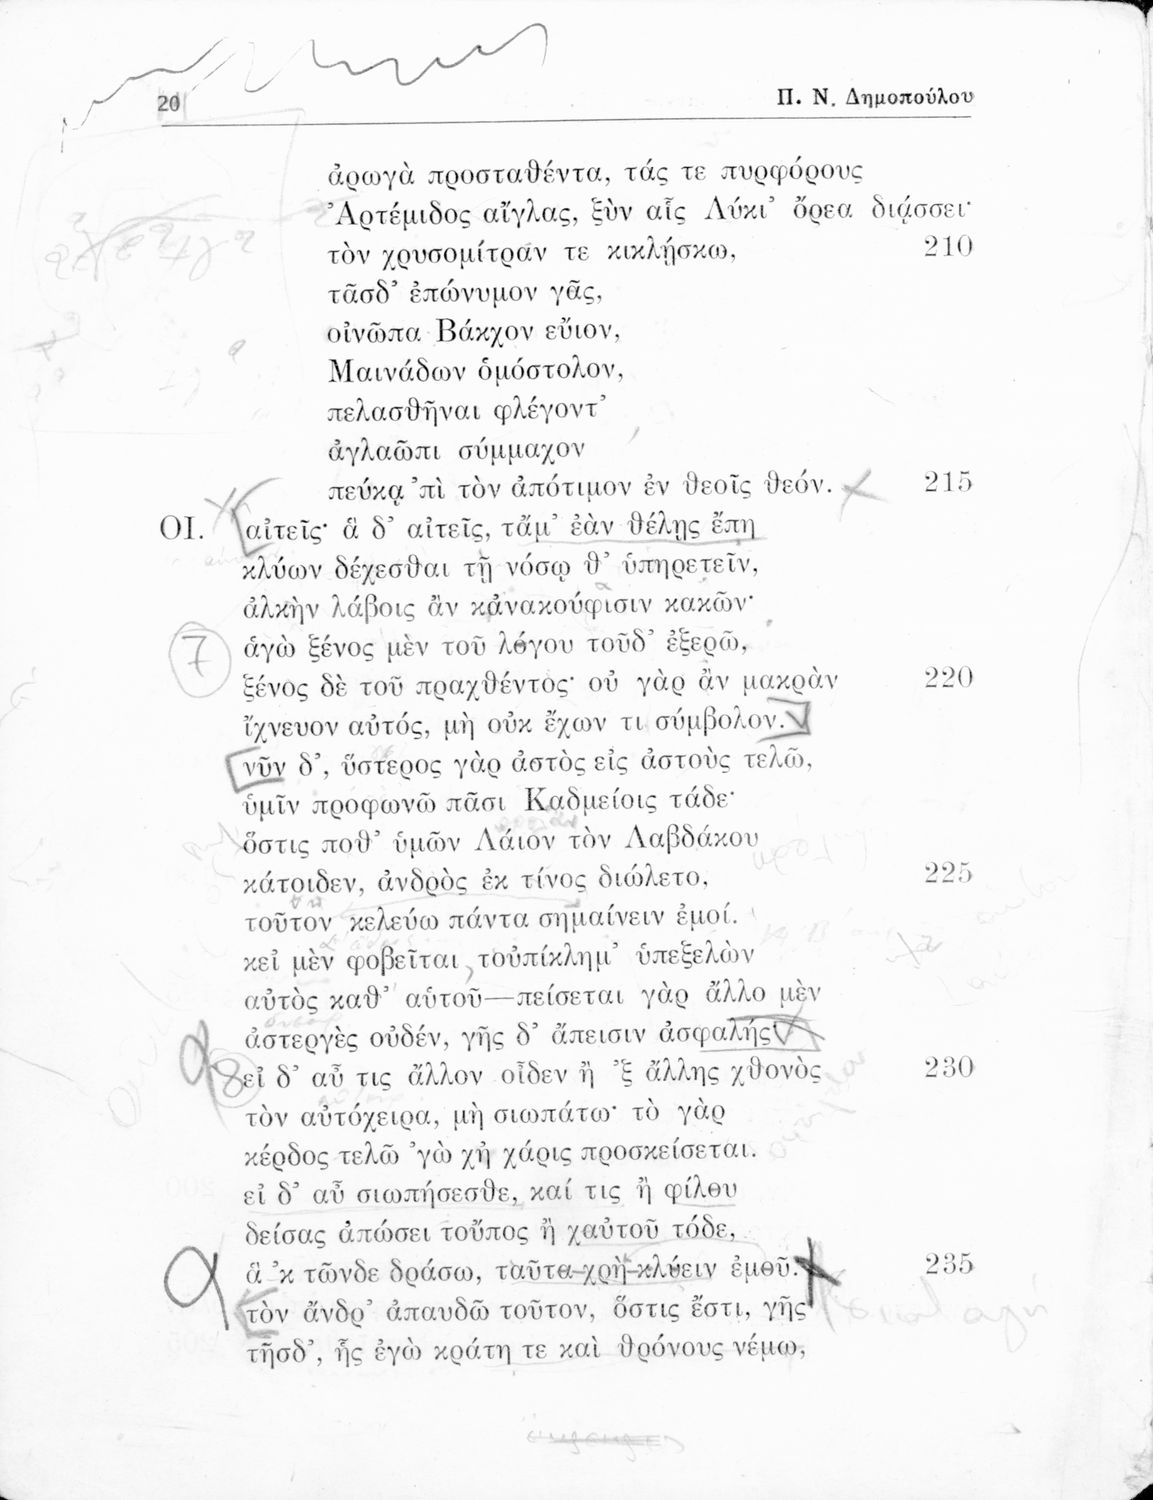 20
Π. Ν. Δημοπούλου
ἀρωγὰ προσταθέντα, τάς τε πυρφόρους
Ἀρτέμιδος αἴγλας, ξὺν αἷς Λύκι' ὄρεα διᾴσσει·
τὸν χρυσομίτραν τε κικλῄσκω, 210
τᾶσδ' ἐπώνυμον γᾶς,
οἰνῶπα Βάκχον εὔιον,
Μαινάδων ὁμόστολον,
πελασθῆναι φλέγοντ'
ἀγλαῶπι σύμμαχον
πεύκᾳ 'πὶ τὸν ἀπότιμον ἐν θεοῖς θεόν. 215
ΟΙ. αἰτεῖς· ἃ δ' αἰτεῖς, τἄμ' ἐὰν θέλῃς ἔπη
κλύων δέχεσθαι τῇ νόσῳ θ' ὑπηρετεῖν,
ἀλκὴν λάβοις ἂν κἀνακούφισιν κακῶν·
7 ἁγὼ ξένος μὲν τοῦ λόγου τοῦδ' ἐξερῶ,
ξένος δὲ τοῦ πραχθέντος· οὐ γὰρ ἂν μακρὰν 220
ἴχνευον αὐτός, μὴ οὐκ ἔχων τι σύμβολον.
νῦν δ', ὕστερος γὰρ ἀστὸς εἰς ἀστοὺς τελῶ,
ὑμῖν προφωνῶ πᾶσι Καδμείοις τάδε·
ὅστις ποθ' ὑμῶν Λάιον τὸν Λαβδάκου
κάτοιδεν, ἀνδρὸς ἐκ τίνος διώλετο, 225
τοῦτον κελεύω πάντα σημαίνειν ἐμοί.
κεἰ μὲν φοβεῖται, τοὐπίκλημ' ὑπεξελὼν
αὐτὸς καθ' αὑτοῦ—πείσεται γὰρ ἄλλο μὲν
ἀστεργὲς οὐδέν, γῆς δ' ἄπεισιν ἀσφαλής·
8 εἰ δ' αὖ τις ἄλλον οἶδεν ἢ 'ξ ἄλλης χθονὸς 230
τὸν αὐτόχειρα, μὴ σιωπάτω· τὸ γὰρ
κέρδος τελῶ 'γὼ χἠ χάρις προσκείσεται.
εἰ δ' αὖ σιωπήσεσθε, καί τις ἢ φίλου
δείσας ἀπώσει τοὔπος ἢ χαὐτοῦ τόδε,
ἃ 'κ τῶνδε δράσω, ταῦτα χρὴ κλύειν ἐμοῦ. 235
τὸν ἄνδρ' ἀπαυδῶ τοῦτον, ὅστις ἔστι, γῆς
τῆσδ', ἧς ἐγὼ κράτη τε καὶ θρόνους νέμω,